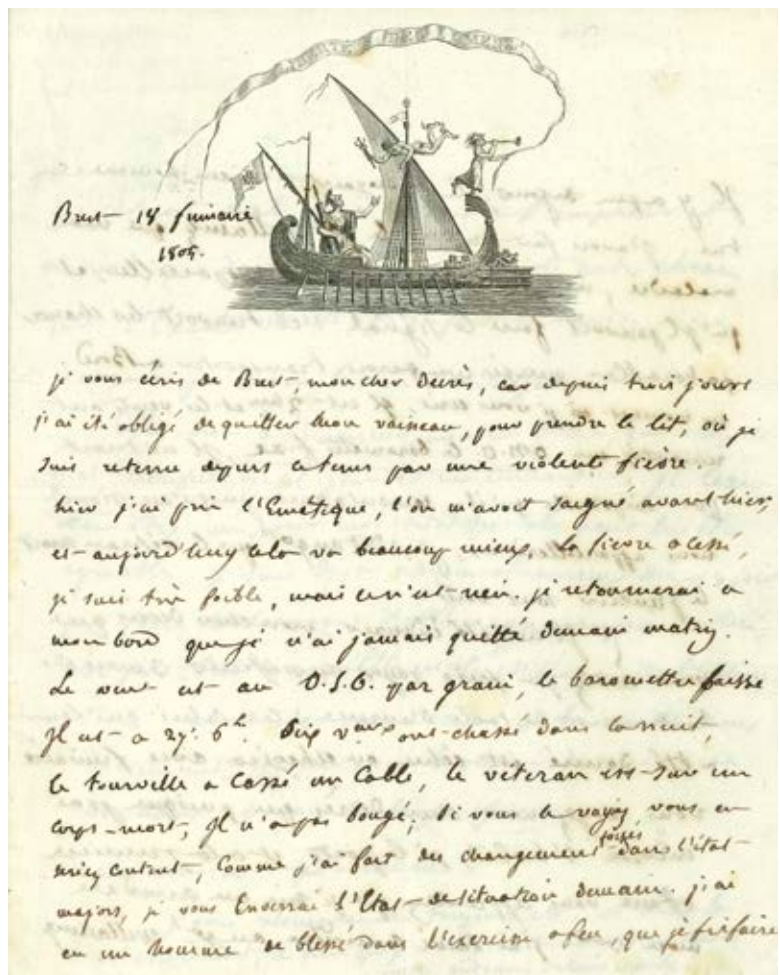 Brest 18 frimaire
1805.
je vous écris de Brest, mon cher Decrès, car depuis trois jours
j'ai été obligé de quitter mon vaisseau, pour prendre le lit, où je
suis retenu depuis ce tems par une violente fièvre.
hier j'ai pris l'Emétique, l'on m'avoit saigné avant hier,
et aujourd'huy cela va beaucoup mieux, la fievre a cessé,
je suis très foible, mais ce n'est rien. je retournerai a
mon bord que je n'ai jamais quitté demain matin.
Le vent est au O.S.O. par grain, le baromettre baisse
Il est a 27. 6 vaux ont chassé dans la nuit,
le tourville a cassé un cable, le veteran est sur un
corps-mort, Il n'a pas bougé, Si vous le voyiez vous en
seriez content, Comme j'ai fait des changements dans l'état
major, je vous Enverrai l'Etat de situation demain. j'ai
eu un homme de blessé dans l'exercice a feu, que je fis faire